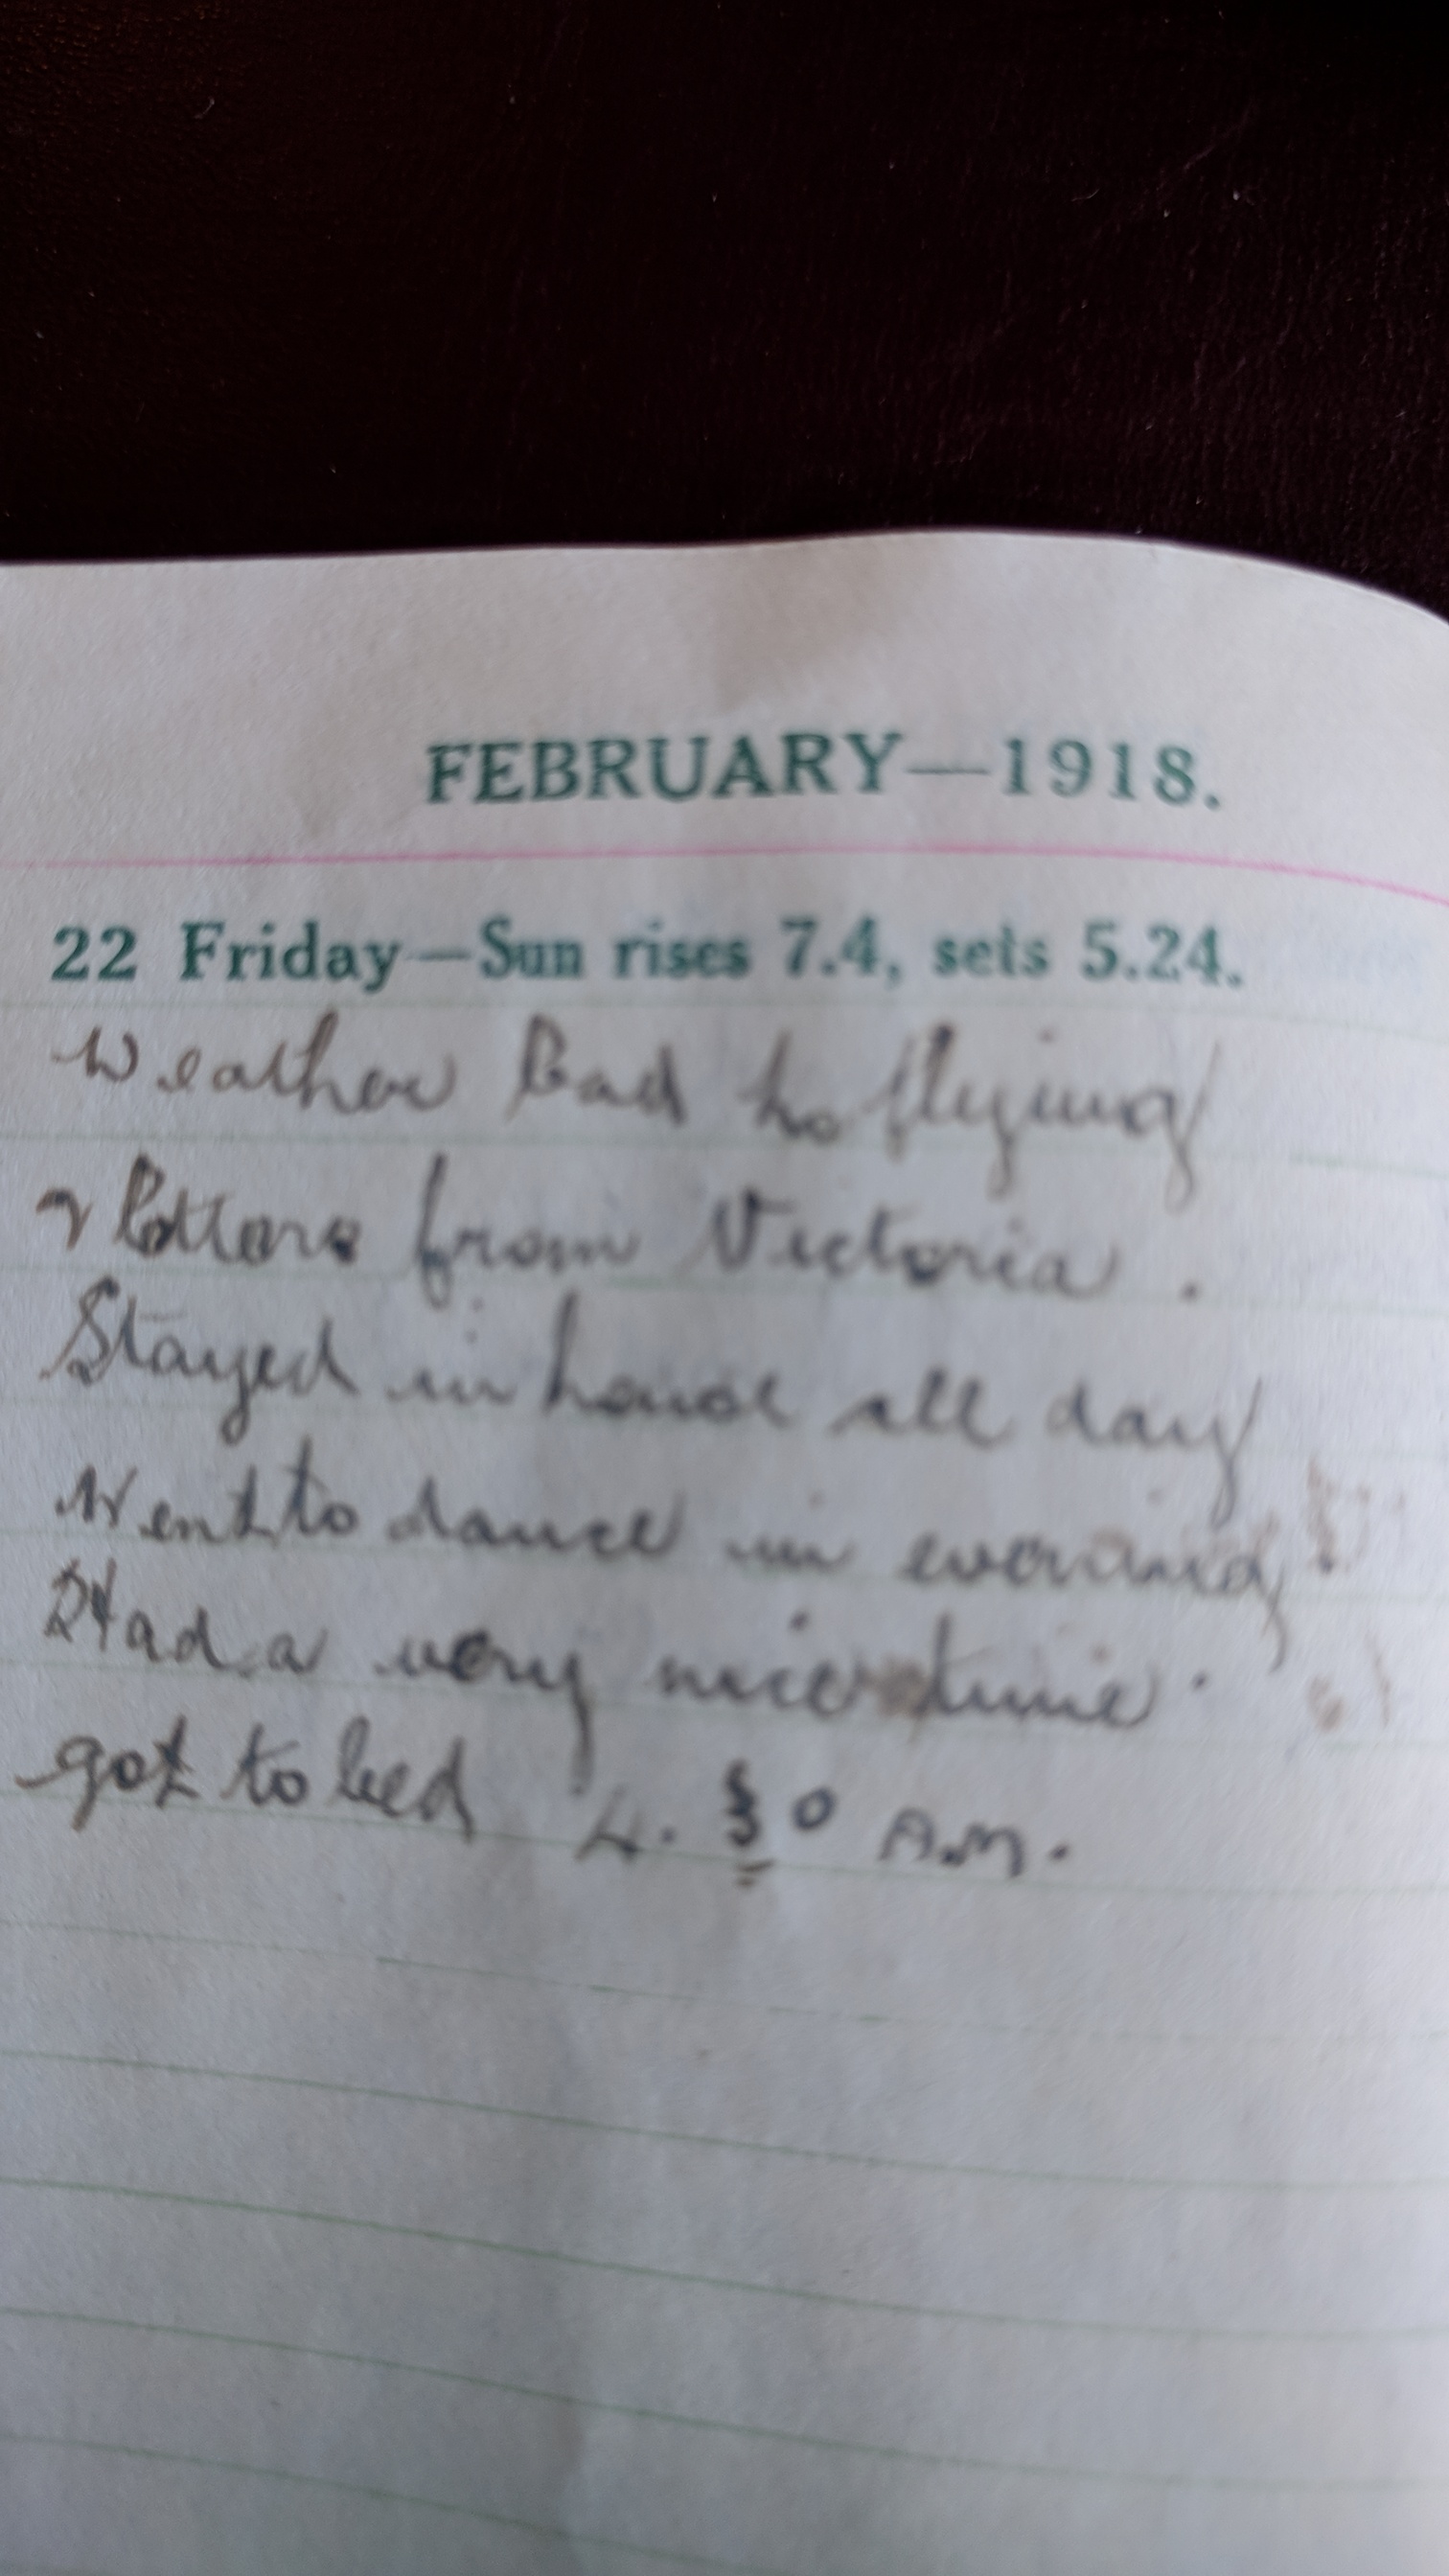 FEBRUARY—1918.
22 Friday—Sun rises 7.4, sets 5.24.
Weather bad no flying
2 letters from Victoria.
Stayed in house all day
Went to dance in evening
Had a very nice time.
got to bed 4.30 A.M.